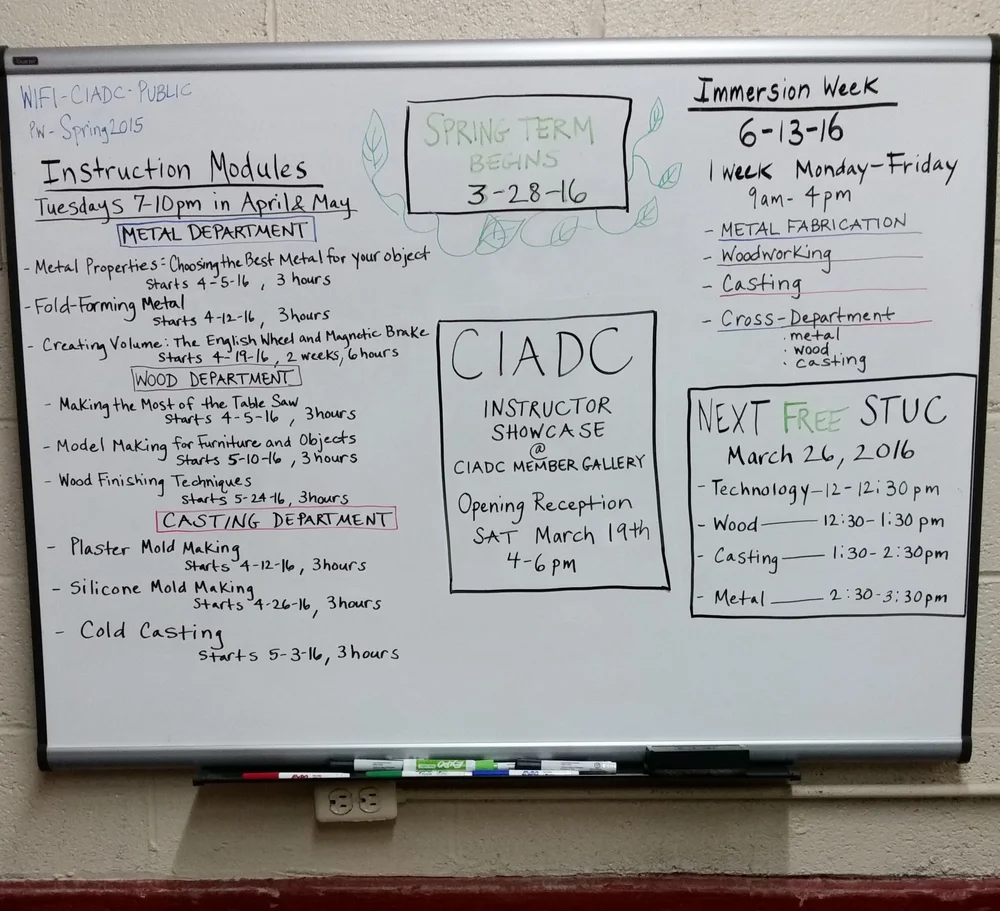 WIFI-CIADC-PUBLIC
PW-Spring2015
Instruction Modules
Tuesdays 7-10pm in April & May
METAL DEPARTMENT
- Metal Properties: Choosing the Best Metal for your object
Starts 4-5-16, 3 hours
- Fold-Forming Metal
Starts 4-12-16, 3hours
- Creating Volume: The English Wheel and Magnetic Brake
Starts 4-19-16, 2 weeks, 6 hours
WOOD DEPARTMENT
- Making the Most of the Table Saw
Starts 4-5-16, 3hours
- Model Making for Furniture and Objects
Starts 5-10-16, 3hours
- Wood Finishing Techniques
Starts 5-24-16, 3hours
CASTING DEPARTMENT
- Plaster Mold Making
Starts 4-12-16, 3hours
- Silicone Mold Making
Starts 4-26-16, 3hours
- Cold Casting
Starts 5-3-16, 3hours
SPRING TERM
BEGINS
3-28-16
CIADC
INSTRUCTOR
SHOWCASE
@
CIADC MEMBER GALLERY
Opening Reception
SAT March 19th
4-6pm
Immersion Week
6-13-16
1 week Monday-Friday
9am-4pm
- METAL FABRICATION
- Woodworking
- Casting
- Cross-Department
. metal
. wood
. casting
NEXT FREE STUC
March 26, 2016
- Technology-12-12:30pm
- Wood - 12:30-1:30pm
- Casting - 1:30-2:30pm
- Metal - 2:30-3:30pm